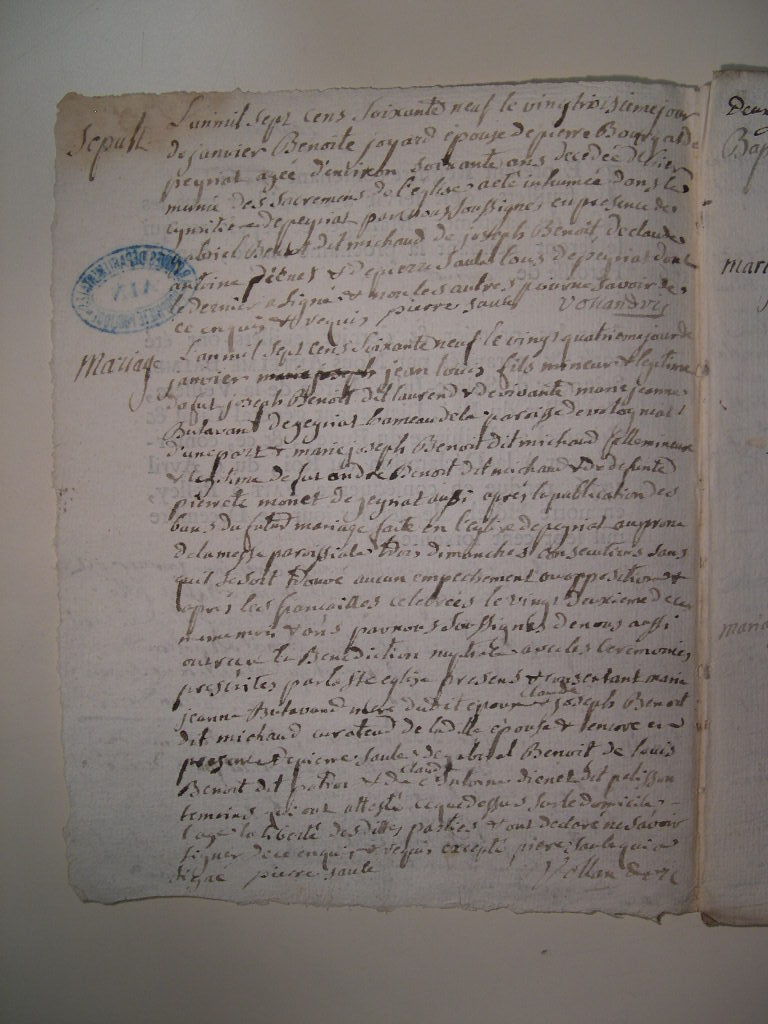 Sepult
L'anmil sept cens soixante neuf le vingtroisieme jour
de janvier Benoite joyard épouse de pierre Bourgade
peyriat agée d'environ soixante ans decedée d'hier
munie des sacremens de l'eglise a eté inhumée dans le
cymitiere de peyriat par nous soussignés en presence de
gabriel Benoit dit michaud de joseph Benoit, de claude
antoine dienet & de pierre saule tous de peyriat dont
le dernier a signé & non les autres pour ne savoir de
ce enquis & requis pierre saule
Mariage
L'anmil sept cens soixante neuf le vingt quatrieme jour de
janvier jean louis fils mineur & legitime
de fut joseph Benoit dit laurend & de vivante marie jeanne
Butavand de peyriat hameau de la paroisse de
d'une part & marie joseph Benoit dit michaud fille mineure
& legitime de fut andré Benoit dit michaud & de defunte
pierrete monet de peyriat aussi après la publication des
bans du futur mariage faite en l'eglise de peyriat au prone
de la messe paroissiale trois dimanches consecutives sans
qu'il se soit trouvé aucun empechement ou opposition &
après les fiancailles celebrées le vingt deuxieme de ce
meme mois & ans par nous soussignés de nous aussi
ont reçu la Benediction nuptiale avec les ceremonies
prescrites par la ste eglise presens & consentant marie
jeanne Butavand mere dudit epoux claude joseph Benoit
dit michaud curateur de ladite épouse & encore en
presence de pierre saule de gabriel Benoit de louis
Benoit dit patron & de claude antoine dienet dit pelisson
temoins qui ont attesté ce que dessus sur le domicile
l'age la liberté des dittes parties & ont declaré ne savoir
signer de ce enquis & requis excepté pierre saule qui a
signé pierre saule